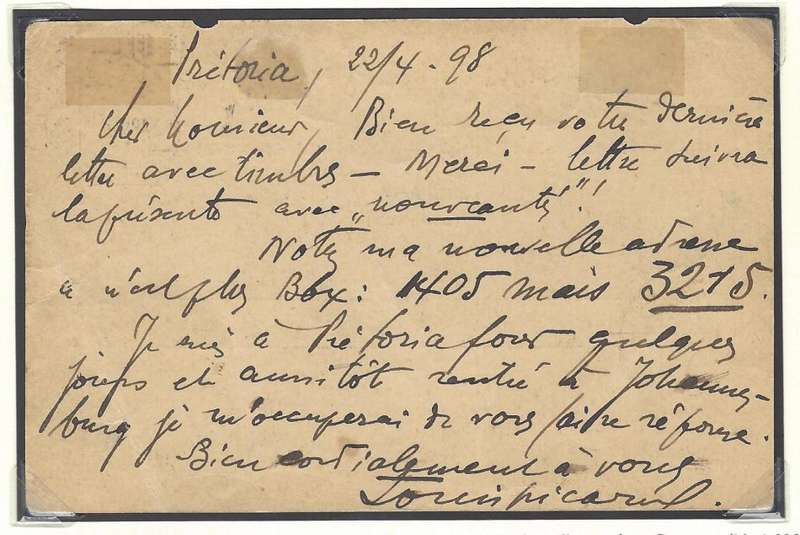 Prétoria, 22/4 - 98
Cher Monsieur, Bien reçu votre dernière
lettre avec timbres - Merci - lettre suivra
la présente avec „nouveautés"!
Notez ma nouvelle adresse
ce n'est plus Box: 1405 mais 3215.
Je suis à Prétoria pour quelques
jours et aussitôt rentré à Johannes-
burg je m'occuperai de vous faire réponse.
Bien cordialement à vous
Louis Picard.